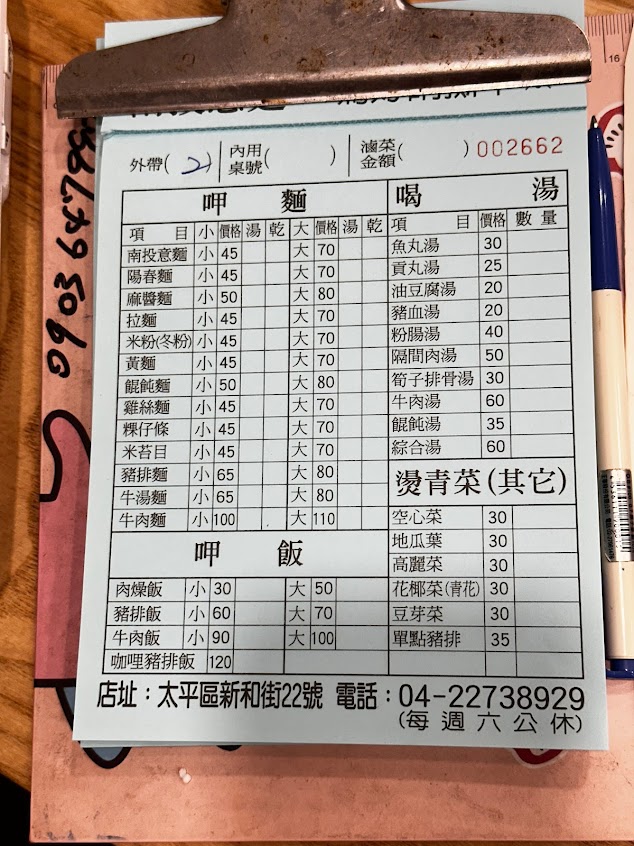 外帶( 2 ) 內用桌號( ) 滷菜金額( ) 002662
呷 麵
項 目 小 價格 湯 乾 大 價格 湯 乾
南投意麵 小 45 大 70
陽春麵 小 45 大 70
麻醬麵 小 50 大 80
拉麵 小 45 大 70
米粉(冬粉) 小 45 大 70
黃麵 小 45 大 70
餛飩麵 小 50 大 80
雞絲麵 小 45 大 70
粿仔條 小 45 大 70
米苔目 小 45 大 70
豬排麵 小 65 大 80
牛湯麵 小 65 大 80
牛肉麵 小 100 大 110
呷 飯
肉燥飯 小 30 大 50
豬排飯 小 60 大 70
牛肉飯 小 90 大 100
咖哩豬排飯 120
喝 湯
項 目 價格 數量
魚丸湯 30
貢丸湯 25
油豆腐湯 20
豬血湯 20
粉腸湯 40
隔間肉湯 50
筍子排骨湯 30
牛肉湯 60
餛飩湯 35
綜合湯 60
燙青菜(其它)
空心菜 30
地瓜葉 30
高麗菜 30
花椰菜(青花) 30
豆芽菜 30
單點豬排 35
店址：太平區新和街22號 電話：04-22738929
(每週六公休)